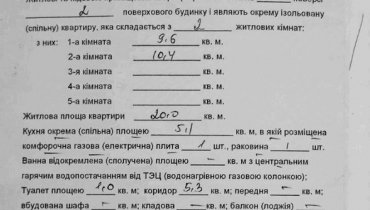 2 поверхового будинку і являють окрему ізольовану
(спільну) квартиру, яка складається з 2 житлових кімнат:
з них: 1-а кімната 9,6 кв. м,
2-а кімната 10,4 кв. м,
3-я кімната кв. м,
4-а кімната кв. м,
5-а кімната кв. м.
Житлова площа квартири 20,0 кв. м.
Кухня окрема (спільна) площею 5,1 кв. м, в якій розміщена
комфорочна газова (електрична) плита 1 шт., раковина 1 шт.
Ванна відокремлена (сполучена) площею – кв. м з центральним
гарячим водопостачанням від ТЭЦ (водонагрівною газовою колонкою);
Туалет площею 1,0 кв. м; коридор 5,3 кв. м; передня – кв. м;
вбудована шафа – кв. м; кладова – кв. м; балкон (лоджія) –